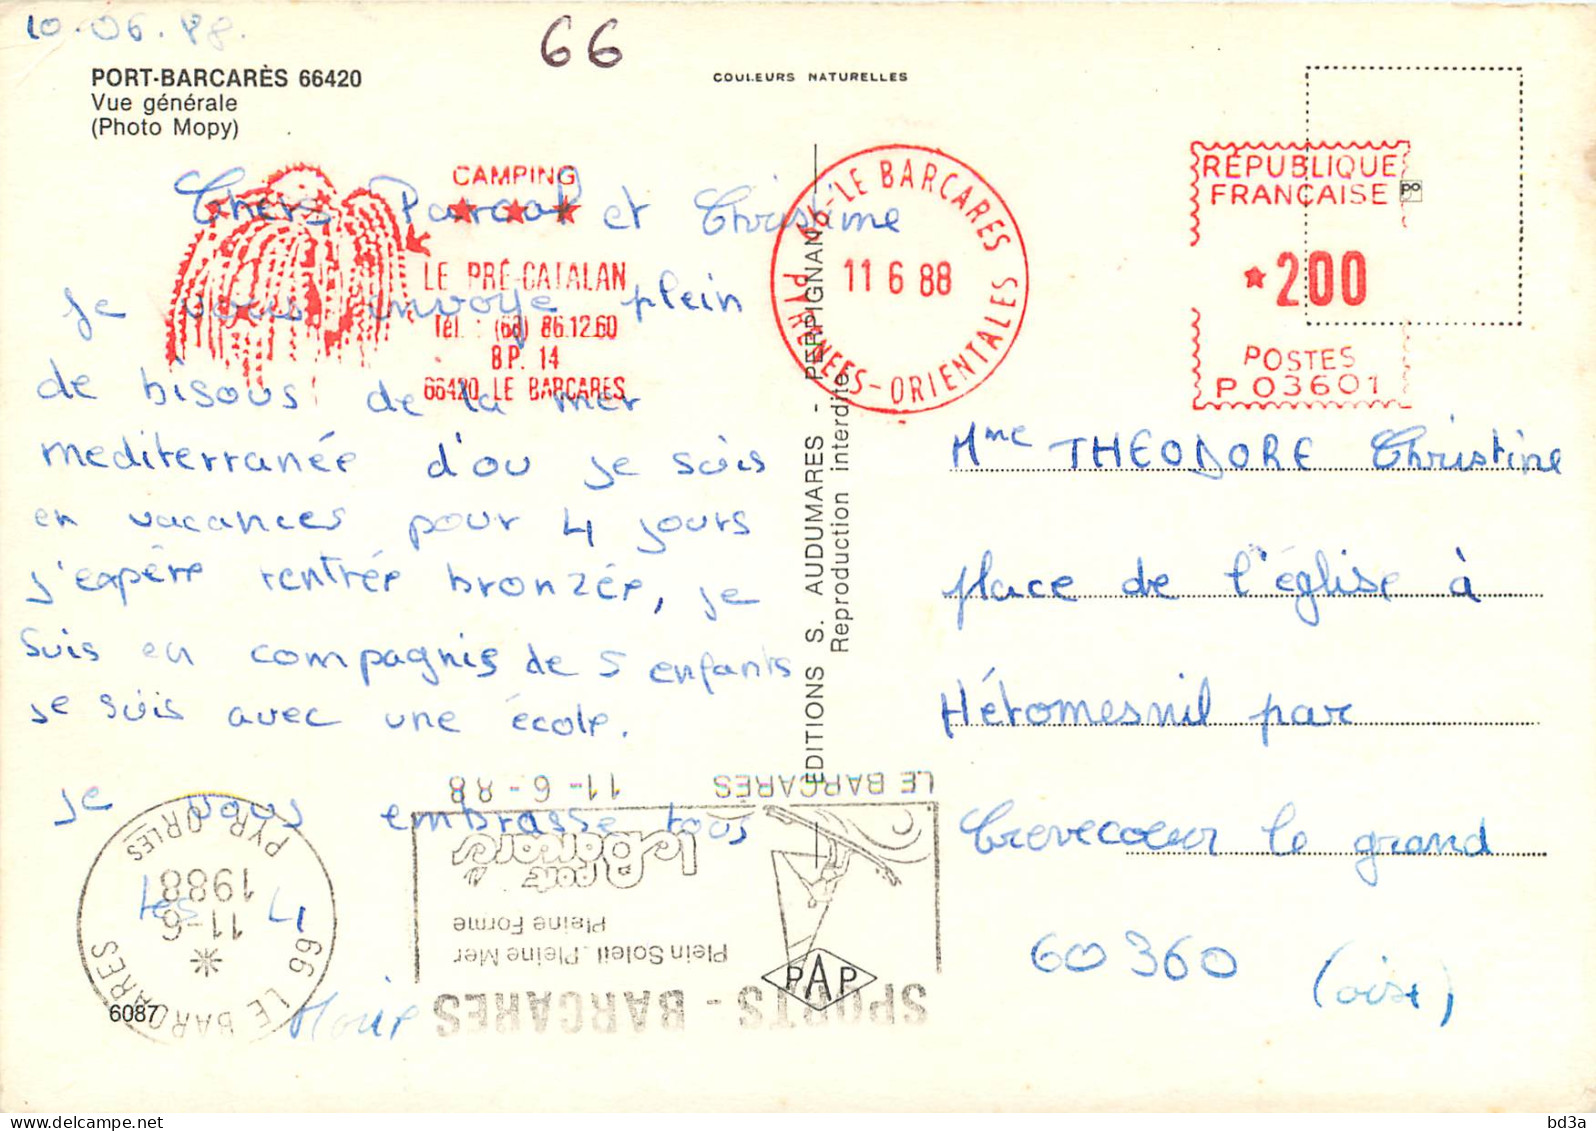 10.06.88.
66
PORT-BARCARÈS 66420
Vue générale
(Photo Mopy)
COULEURS NATURELLES
CAMPING
LE PRÉ-CATALAN
Tél. : (68) 86.12.60
B.P. 14
66420 LE BARCARES
66-LE BARCARES
PYRENEES-ORIENTALES
11 6 88
RÉPUBLIQUE
FRANÇAISE
PO
*200
POSTES
P 03601
Chers Pascal et Christine
je vous envoye plein
de bisous de la mer
mediterranée d'ou je suis
en vacances pour 4 jours
j'espère rentrée bronzée, je
suis en compagnie de 5 enfants
je suis avec une école.
je vous embrasse tous
les 4
EDITIONS S. AUDUMARES - PERPIGNAN
Reproduction interdite
Mme THEODORE Christine
place de l'église à
Hétomesnil par
Crevecoeur le grand
60360
(oise)
LE BARCARES 11-6-88
Port
le Barcarès
Pleine Forme
Plein Soleil . Pleine Mer
SPORTS - BARCARES
PAP
66 LE BARCARES
PYR ORLES
11-6
1988
6087